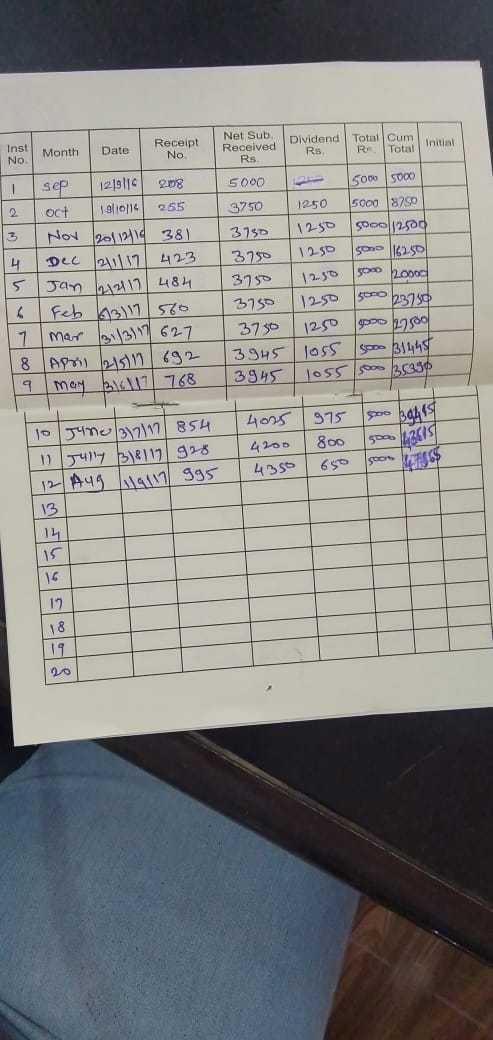 Inst No. Month Date Receipt No. Net Sub. Received Rs. Dividend Rs. Total Rs. Cum Total Initial
1 Sep 12/9/16 208 5000 1250 5000 5000
2 Oct 19/10/16 255 3750 1250 5000 8750
3 Nov 20/12/16 381 3750 1250 5000 12500
4 Dec 2/1/17 423 3750 1250 5000 16250
5 Jan 2/2/17 484 3750 1250 5000 20000
6 Feb 6/3/17 560 3750 1250 5000 23750
7 Mar 31/3/17 627 3750 1250 5000 27500
8 April 2/5/17 692 3945 1055 5000 31445
9 May 3/6/17 768 3945 1055 5000 35390
10 June 3/7/17 854 4025 975 5000 39415
11 Jully 3/8/17 928 4200 800 5000 43615
12 Aug 1/9/17 995 4350 650 5000
13
14
15
16
17
18
19
20